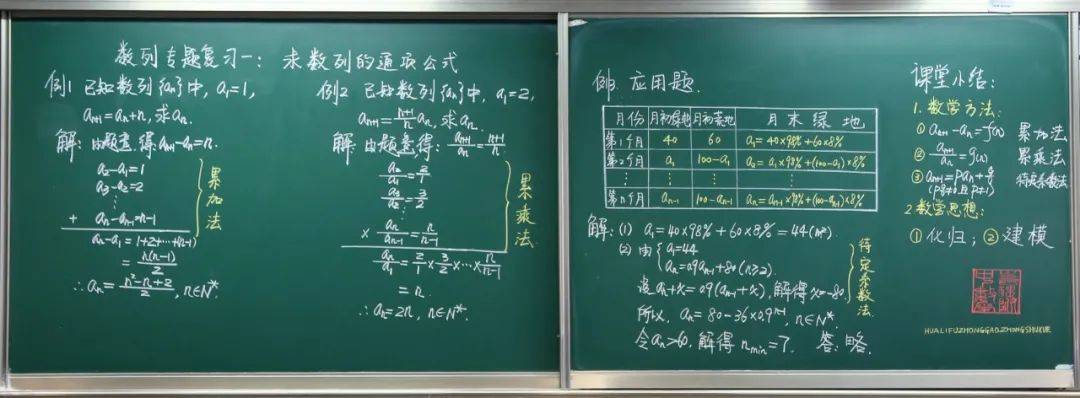 数列专题复习一：求数列的通项公式
例1 已知数列{an}中，a₁=1，
an+1=an+n，求an.
解：由题意，得an+1-an=n.
a₂-a₁=1
a₃-a₂=2
⋮
+ an-an-1=n-1
an-a₁=1+2+…+(n-1)
=n(n-1)/2
∴an=(n²-n+2)/2，n∈N*.
累加法
例2 已知数列{an}中，a₁=2，
an+1=(n+1)/n an，求an.
解：由题意得：an+1/an=(n+1)/n
a₂/a₁=2/1
a₃/a₂=3/2
⋮
× an/an-1=n/(n-1)
an/a₁=2/1×3/2×…×n/(n-1)
=n.
∴an=2n，n∈N*.
累乘法
例3 应用题.
月份 月初绿地 月初荒地 月末绿地
第1个月 40 60 a₁=40×98%+60×8%
第2个月 a₁ 100-a₁ a₂=a₁×98%+(100-a₁)×8%
⋮ ⋮ ⋮ ⋮
第n个月 an-1 100-an-1 an=an-1×98%+(100-an-1)×8%
解：(1) a₁=40×98%+60×8%=44(m²).
(2) 由{a₁=44
an=0.9an-1+8(n≥2).
设an+x=0.9(an-1+x)，解得x=-80
所以，an=80-36×0.9ⁿ⁻¹，n∈N*.
令an>60，解得nmin=7. 答：略.
待定系数法
课堂小结：
1.数学方法：
①an+1-an=f(n) 累加法
②an+1/an=g(n) 累乘法
③an+1=pan+q 待定系数法
(pq≠0且p≠1)
2.数学思想：
①化归；②建模
HUALIFUZHONGGAOZHONGSHUXUE